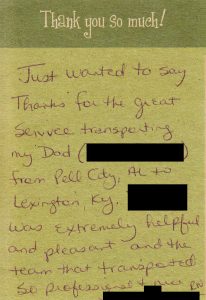 Thank you so much!
Just wanted to say
Thanks for the great
Service transporting
my Dad (
)
from Pell City, AL to
Lexington, Ky.
was extremely helpful
and pleasant and the
team that transported
so professional &